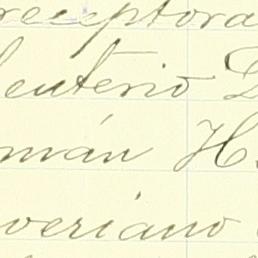 receptora
leuterio D
mán H.
veriano